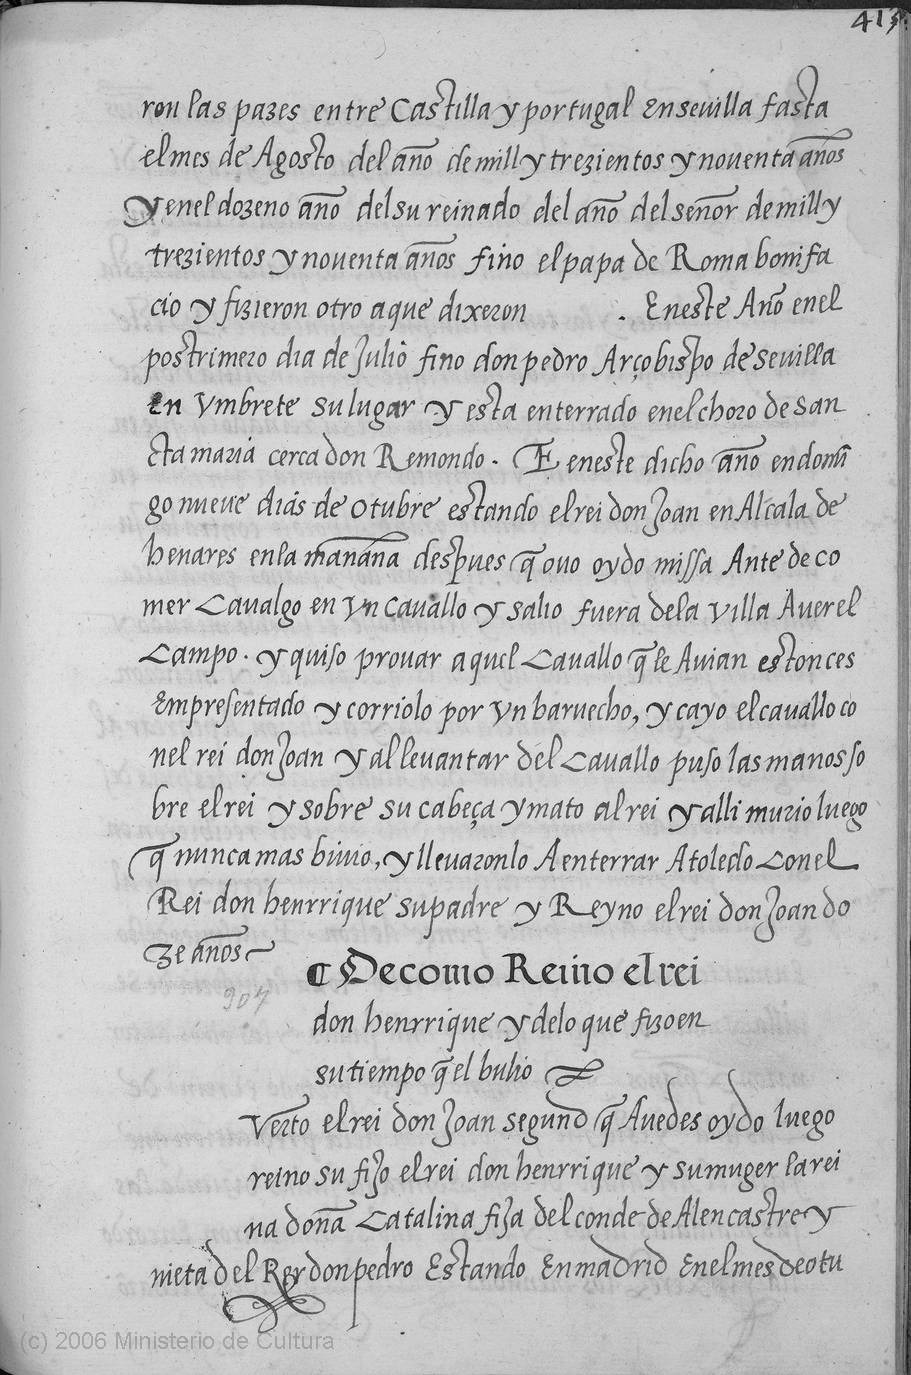 413
ron las pazes entre Castilla y portugal En seuilla fasta
el mes de Agosto del año de mill y trezientos y nouenta años
y enel dozeno año del su reinado del año del señor de mill y
trezientos y nouenta años fino el papa de Roma bonifa
cio y fizieron otro a que dixeron . Eneste Año enel
postrimero dia de Julio fino don pedro Arçobispo de Seuilla
En Vmbrete su lugar y esta enterrado enel choro de San
cta maria cerca don Remondo. E eneste dicho año en domi
go nueue dias de Otubre estando el rei don Joan en Alcala de
henares en la mañana despues q̃ ouo oydo missa Ante de co
mer Caualgo en Vn cauallo y salio fuera dela Villa Auer el
Campo. y quiso prouar aquel Cauallo q̃ le Auian estonces
Empresentado y corriolo por Vn baruecho, y cayo el cauallo co
nel rei don Joan y al leuantar del Cauallo puso las manos so
bre el rei y sobre su cabeça y mato al rei y alli murio luego
q̃ nunca mas biuio, y lleuaronlo A enterrar A toledo Conel
Rei don henrrique su padre y Reyno el rei don Joan do
ze años
907
¶ De como Reino el rei
don henrrique y delo que fizo en
su tiempo q̃ el bulio
Verto el rei don Joan segund q̃ Auedes oydo luego
reino su fijo el rei don henrrique y su muger la rei
na doña Catalina fija del conde de Alencastre y
nieta del Rey don pedro Estando En madrid Enel mes de otu
(c) 2006 Ministerio de Cultura